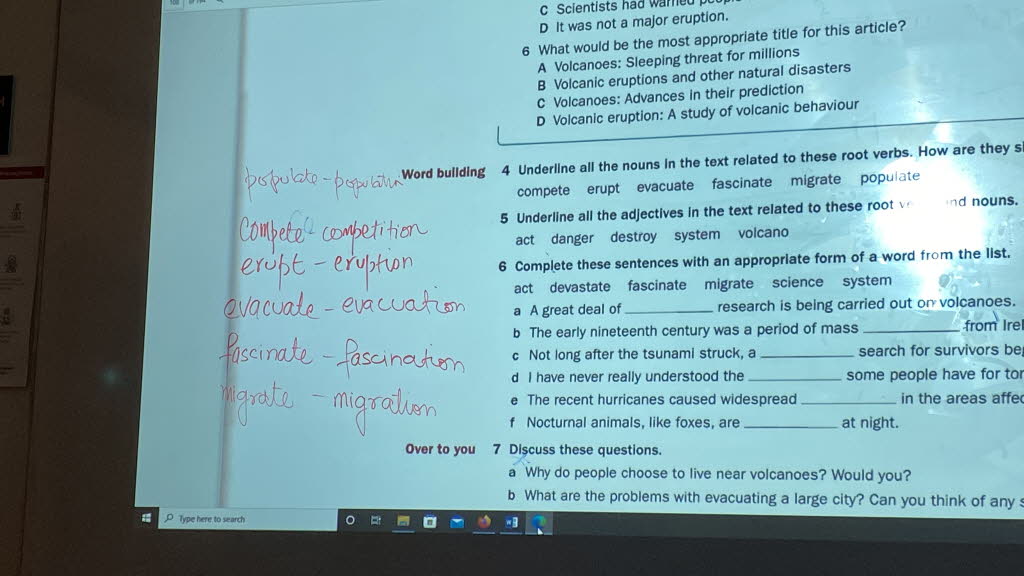 C Scientists had warned
D It was not a major eruption.
6 What would be the most appropriate title for this article?
A Volcanoes: Sleeping threat for millions
B Volcanic eruptions and other natural disasters
C Volcanoes: Advances in their prediction
D Volcanic eruption: A study of volcanic behaviour
populate - population
Word building 4 Underline all the nouns in the text related to these root verbs. How are they
compete erupt evacuate fascinate migrate populate
compete - competition
5 Underline all the adjectives in the text related to these root nouns.
act danger destroy system volcano
erupt - eruption
6 Complete these sentences with an appropriate form of a word from the list.
act devastate fascinate migrate science system
evacuate - evacuation
a A great deal of ________ research is being carried out on volcanoes.
b The early nineteenth century was a period of mass ________ from
fascinate - fascination
c Not long after the tsunami struck, a ________ search for survivors
d I have never really understood the ________ some people have for
migrate - migration
e The recent hurricanes caused widespread ________ in the areas
f Nocturnal animals, like foxes, are ________ at night.
Over to you 7 Discuss these questions.
a Why do people choose to live near volcanoes? Would you?
b What are the problems with evacuating a large city? Can you think of any
Type here to search